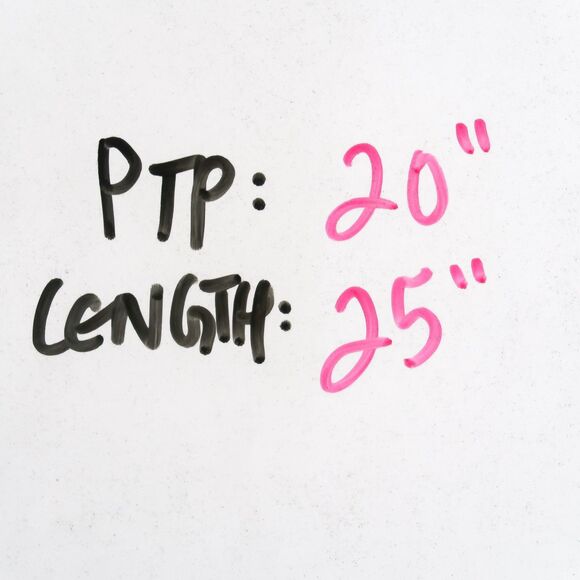 PTP: 20"
LENGTH: 25"